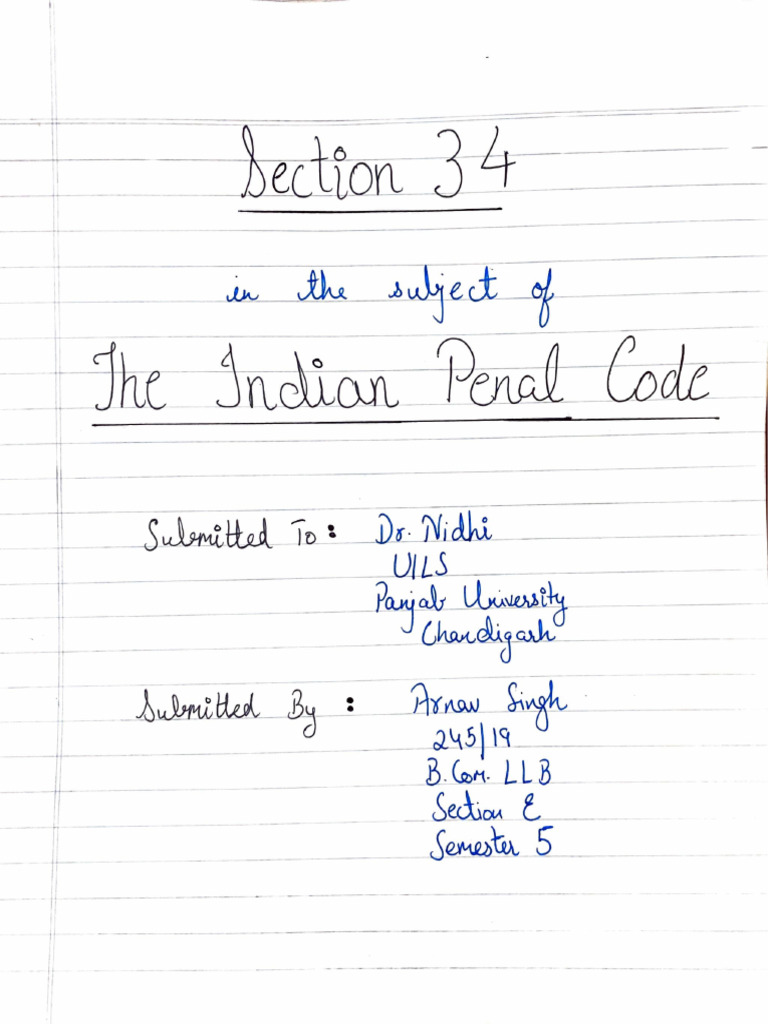 Section 34
in the subject of
The Indian Penal Code
Submitted To : Dr. Nidhi
UILS
Panjab University
Chandigarh
Submitted By : Arnav Singh
245/19
B.Com. LLB
Section E
Semester 5